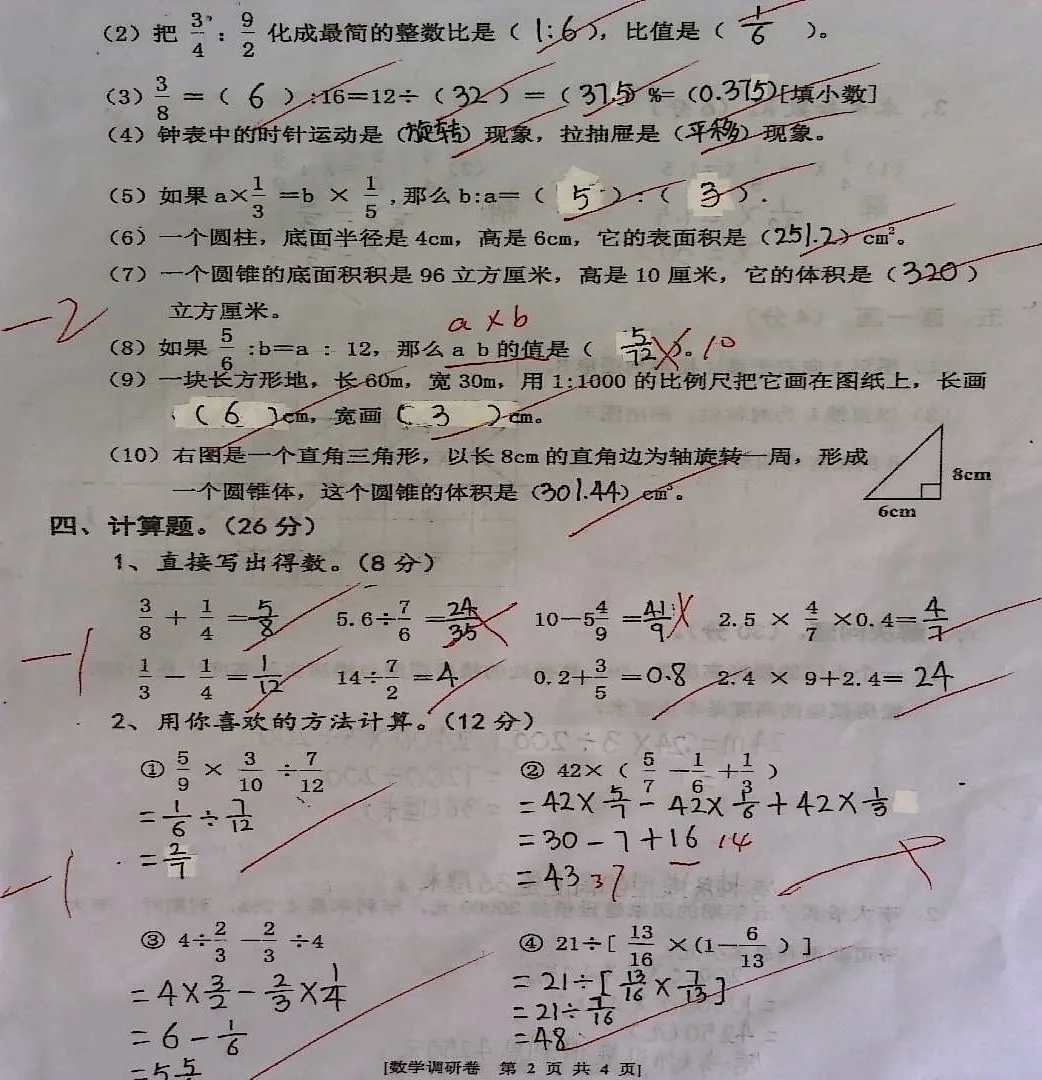 (2) 把 3/4 : 9/2 化成最简的整数比是 ( 1:6 ), 比值是 ( 1/6 )。
(3) 3/8 = ( 6 ) :16=12÷ ( 32 ) = ( 37.5 ) %= (0.375)[填小数]
(4) 钟表中的时针运动是 (旋转) 现象, 拉抽屉是 (平移) 现象。
(5) 如果 a×1/3 =b × 1/5 ,那么 b:a= ( 5 ) : ( 3 ) .
(6) 一个圆柱, 底面半径是 4cm, 高是 6cm, 它的表面积是 (251.2) cm²。
(7) 一个圆锥的底面积积是 96 立方厘米, 高是 10 厘米, 它的体积是 (320)
立方厘米。
-2
a×b
(8) 如果 5/6 :b=a : 12, 那么 a b 的值是 ( 5/72 )。 10
(9) 一块长方形地, 长 60m, 宽 30m, 用 1:1000 的比例尺把它画在图纸上, 长画
( 6 )cm, 宽画 ( 3 )cm。
(10) 右图是一个直角三角形, 以长 8cm 的直角边为轴旋转一周, 形成
一个圆锥体, 这个圆锥的体积是 (301.44) cm³。
8cm
6cm
四、计算题。(26 分)
1、直接写出得数。(8 分)
3/8 + 1/4 =5/8 5.6÷7/6 =24/35 10-5 4/9 =41/9 2.5 × 4/7 ×0.4=4/7
-1
1/3 - 1/4 =1/12 14÷7/2 =4 0.2+3/5 =0.8 2.4 × 9+2.4= 24
2、用你喜欢的方法计算。(12 分)
① 5/9 × 3/10 ÷7/12 ② 42× ( 5/7 -1/6 +1/3 )
=1/6÷7/12 =42×5/7-42×1/6+42×1/3
=2/7 =30-7+16 14
-1
=43 37
③ 4÷2/3 -2/3 ÷4 ④ 21÷[ 13/16 ×(1-6/13 ) ]
=4×3/2-2/3×1/4 =21÷[13/16×7/13]
=6-1/6 =21÷7/16
=48
[数学调研卷 第 2 页 共 4 页]